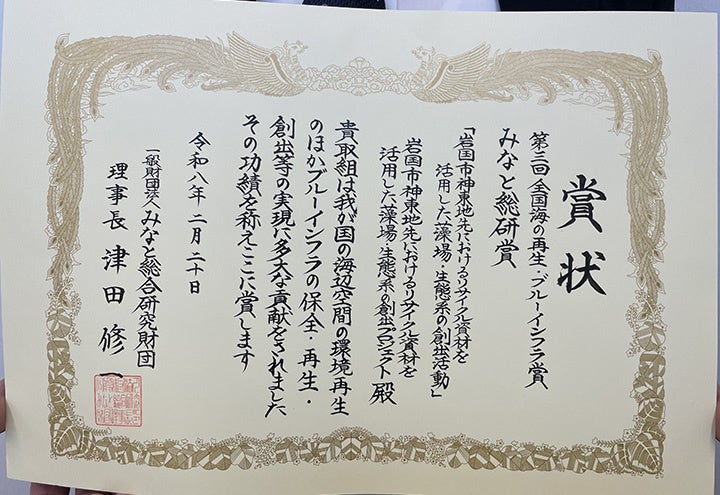 賞状
第三回 全国海の再生・ブルーインフラ賞
みなと総研賞
「岩国市神東地先におけるリサイクル資材を
活用した藻場・生態系の創出活動」
岩国市神東地先におけるリサイクル資材を
活用した藻場・生態系の創出プロジェクト 殿
貴取組は我が国の海辺空間の環境再生
のほかブルーインフラの保全・再生・
創出等の実現に多大な貢献をされました
その功績を称えここに賞します
令和八年 二月 二十日
一般財団法人 みなと総合研究財団
理事長 津田修一